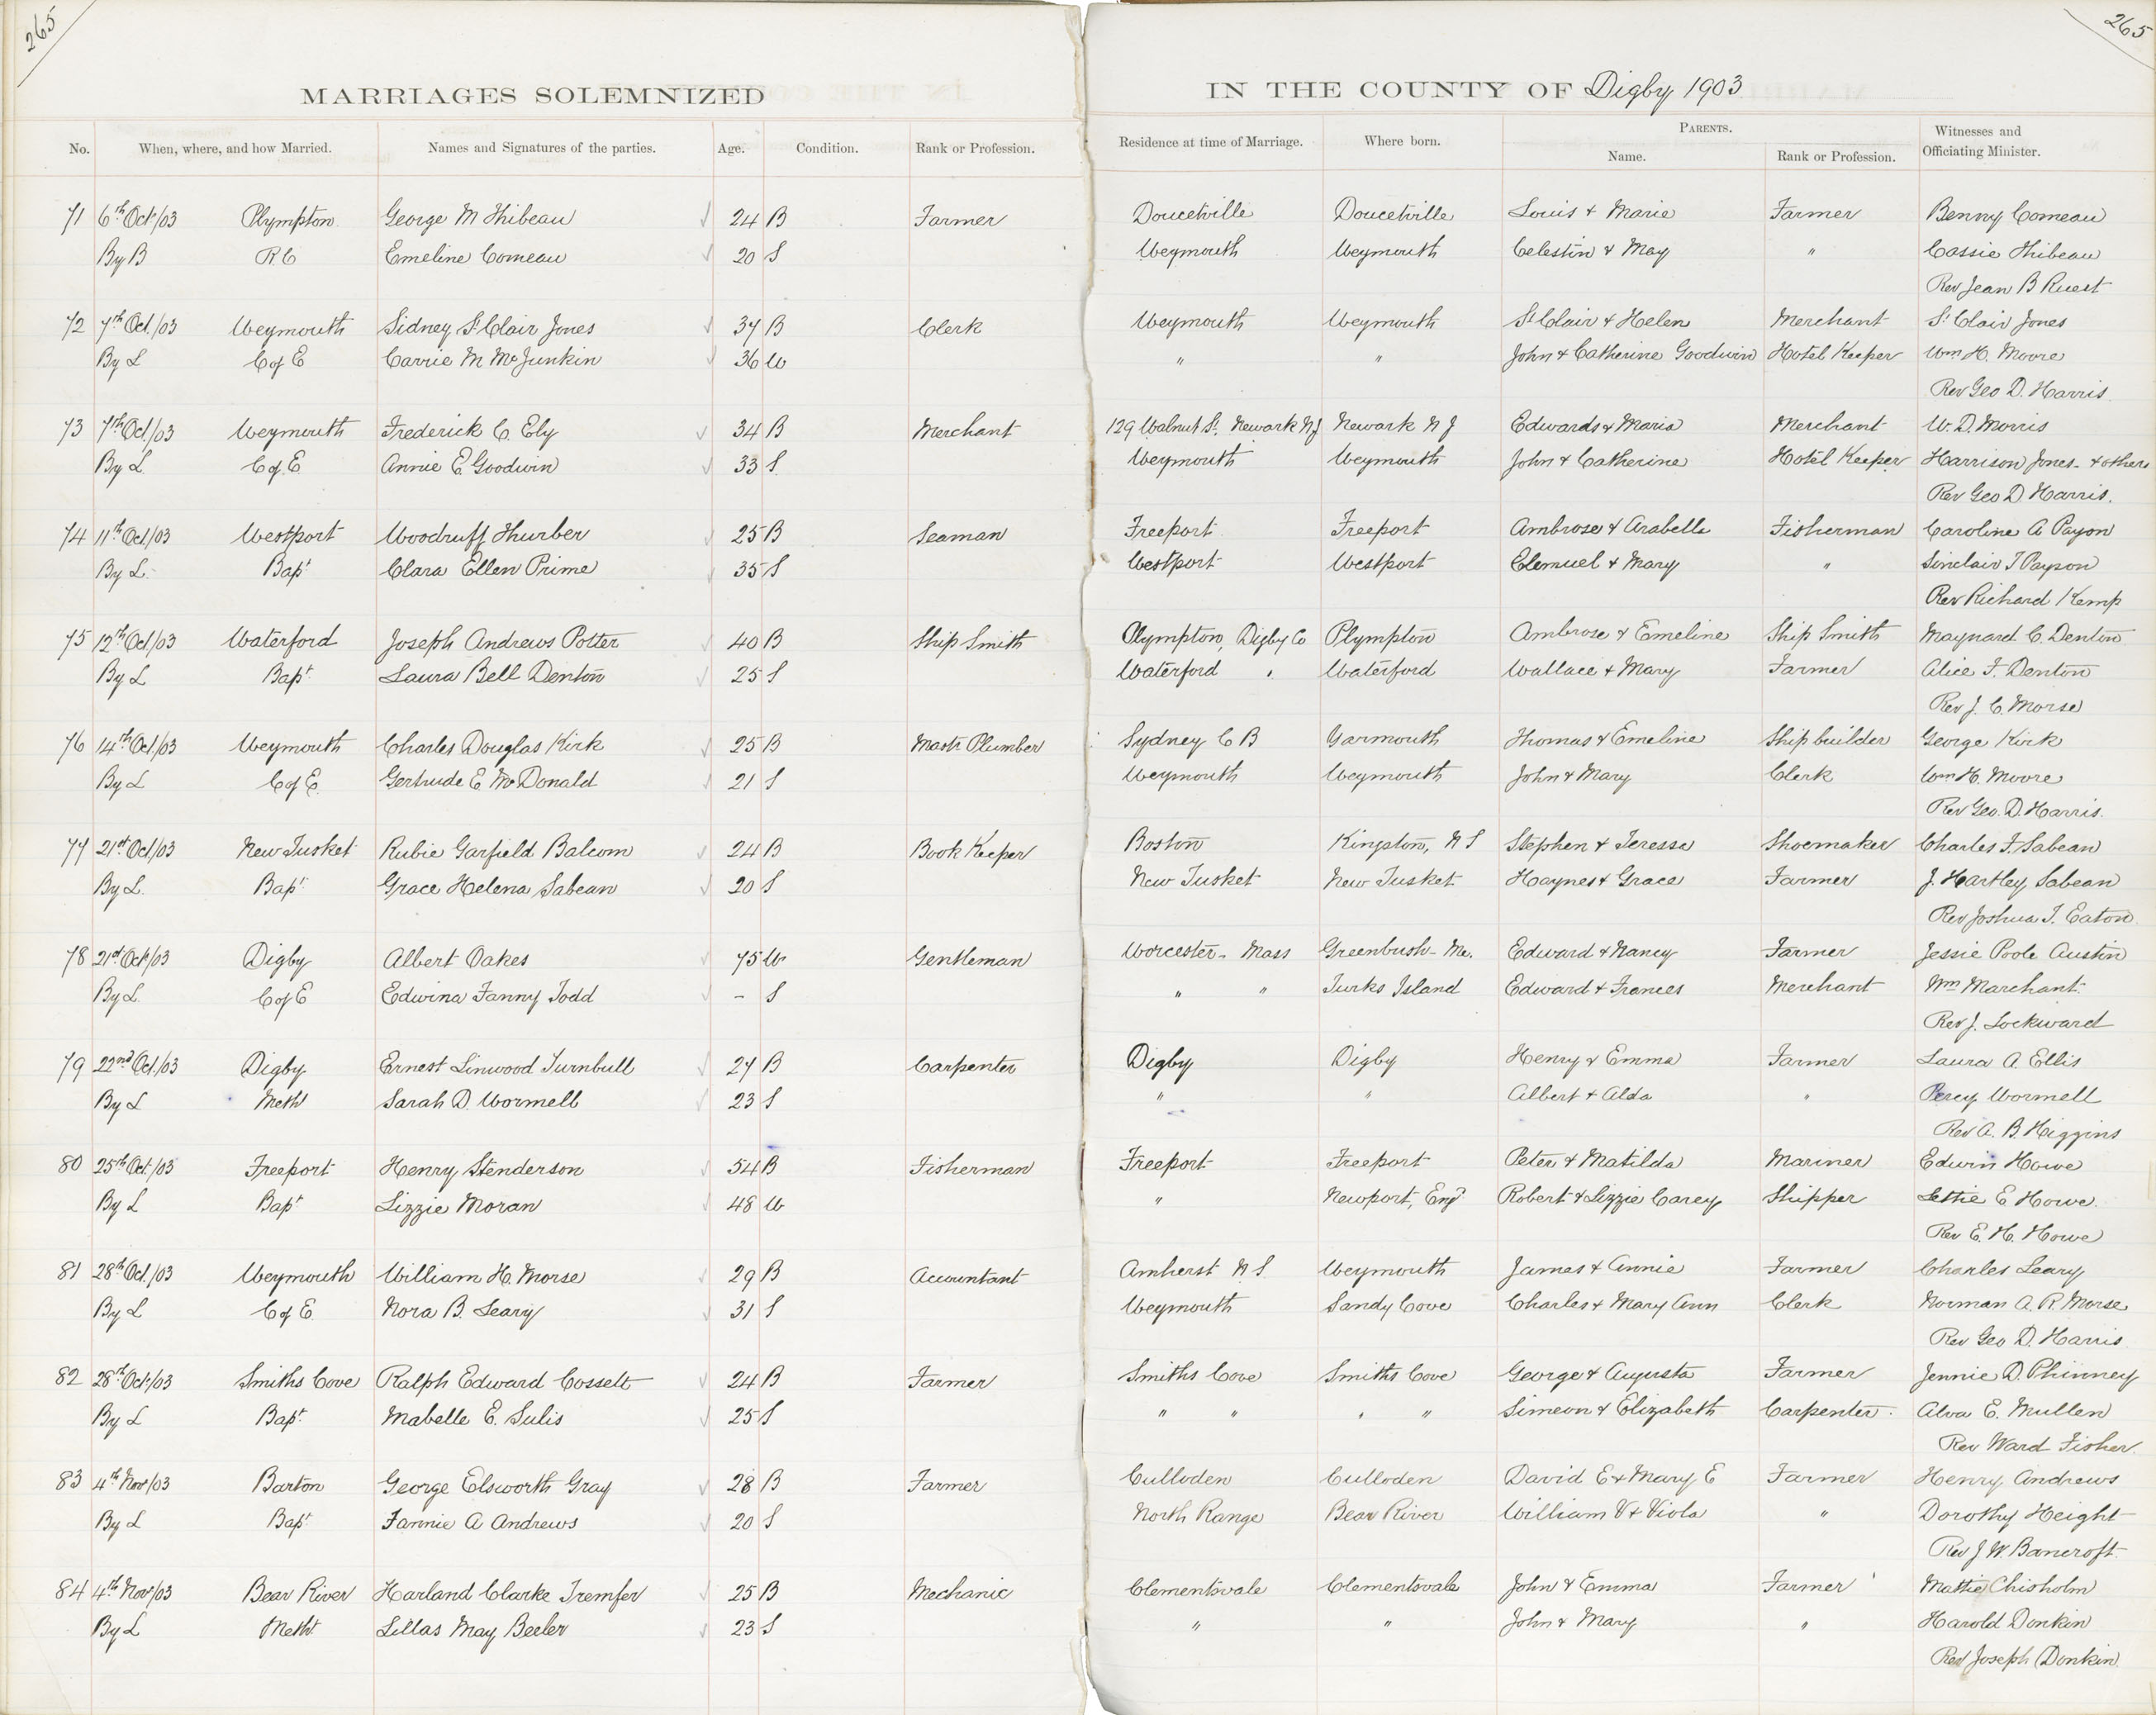 265
265
MARRIAGES SOLEMNIZED IN THE COUNTY OF Digby 1903
No. When, where, and how Married. Names and Signatures of the parties. Age. Condition. Rank or Profession. Residence at time of Marriage. Where born. PARENTS. Name. Rank or Profession. Witnesses and Officiating Minister.
71 6th Oct/03 Plympton George M Thibeau 24 B Farmer Doucetville Doucetville Louis & Marie Farmer Benny Comeau
By B R.C Emeline Comeau 20 S Weymouth Weymouth Celestin & May " Cassie Thibeau
Rev Jean B Ruest
72 7th Oct./03 Weymouth Sidney St Clair Jones 37 B Clerk Weymouth Weymouth St Clair & Helen Merchant St Clair Jones
By L C of E Carrie M McJunkin 36 W " " John & Catherine Goodwin Hotel Keeper Wm H. Moore
Rev Geo D. Harris
73 7th Oct/03 Weymouth Frederick C. Ely 34 B Merchant 129 Walnut St. Newark NJ Newark N J Edwards & Maria Merchant W. D. Morris
By L. C of E Annie E Goodwin 33 S Weymouth Weymouth John & Catherine Hotel Keeper Harrison Jones & others
Rev Geo D Harris.
74 11th Oct/03 Westport Woodruff Thurber 25 B Seaman Freeport Freeport Ambrose & Arabella Fisherman Caroline A Payon
By L. Bapt Clara Ellen Prime 35 S Westport Westport Elemuel & Mary " Sinclair T Payson
Rev Richard Kemp
75 12th Oct/03 Waterford Joseph Andrews Potter 40 B Ship Smith Plympton, Digby Co Plympton Ambrose & Emeline Ship Smith Maynard C. Denton
By L Bapt. Laura Bell Denton 25 S Waterford " Waterford Wallace & Mary Farmer Alice F. Denton
Rev J. C. Morse
76 14th Oct/03 Weymouth Charles Douglas Kirk 25 B Mastr Plumber Sydney C B Yarmouth Thomas & Emeline Shipbuilder George Kirk
By L C of E. Gertrude E McDonald 21 S Weymouth Weymouth John & Mary Clerk Wm H. Moore
Rev Geo. D. Harris.
77 21st Oct/03 New Tusket Rubie Garfield Balcom 24 B Book Keeper Boston Kingston, N S Stephen & Teressa Shoemaker Charles F. Sabean
By L. Bapt. Grace Helena Sabean 20 S New Tusket New Tusket Haynes & Grace Farmer J. Hartley Sabean
Rev Joshua T. Eaton
78 21st Oct/03 Digby Albert Oakes 75 W Gentleman Worcester - Mass Greenbush - Me. Edward & Nancy Farmer Jessie Poole Austin
By L. C of E Edwina Fanny Todd - S " " Turks Island Edward & Frances Merchant Wm Marchant.
Rev J. Lockward
79 22nd Oct./03 Digby Ernest Linwood Turnbull 27 B Carpenter Digby Digby Henry & Emma Farmer Laura A. Ellis
By L Meth Sarah D. Wormell 23 S " " Albert & Alda " Percy Wormell
Rev A. B. Higgins
80 25th Oct/03 Freeport Henry Stenderson 54 B Fisherman Freeport Freeport Peter & Matilda Mariner Edwin Howe
By L Bapt Lizzie Moran 48 W " Newport, Engd Robert & Lizzie Carey Shipper Lettie E Howe.
Rev E. H. Howe
81 28th Oct./03 Weymouth William H. Morse 29 B Accountant Amherst N.S. Weymouth James & Annie Farmer Charles Leary
By L C of E. Nora B. Leary 31 S Weymouth Sandy Cove Charles & Mary Ann Clerk Norman A. R. Morse
Rev Geo D. Harris
82 28th Oct/03 Smiths Cove Ralph Edward Cossett 24 B Farmer Smiths Cove Smiths Cove George & Augusta Farmer Jennie D. Phinney
By L Bapt. Mabelle E. Sulis 25 S " " " " Simeon & Elizabeth Carpenter. Alva E. Mullen
Rev Ward Fisher.
83 4th Nov/03 Barton George Elsworth Gray 28 B Farmer Culloden Culloden David E & Mary E Farmer Henry Andrews
By L Bapt Fannie A Andrews 20 S North Range Bear River William V & Viola " Dorothy Height
Rev J. W. Bancroft.
84 4th Nov/03 Bear River Harland Clarke Tremfer 25 B Mechanic Clementsvale Clementsvale John & Emma Farmer Mattie Chisholm
By L Meth Lillas May Beeler 23 S " " John & Mary " Harold Donkin
Rev Joseph Donkin